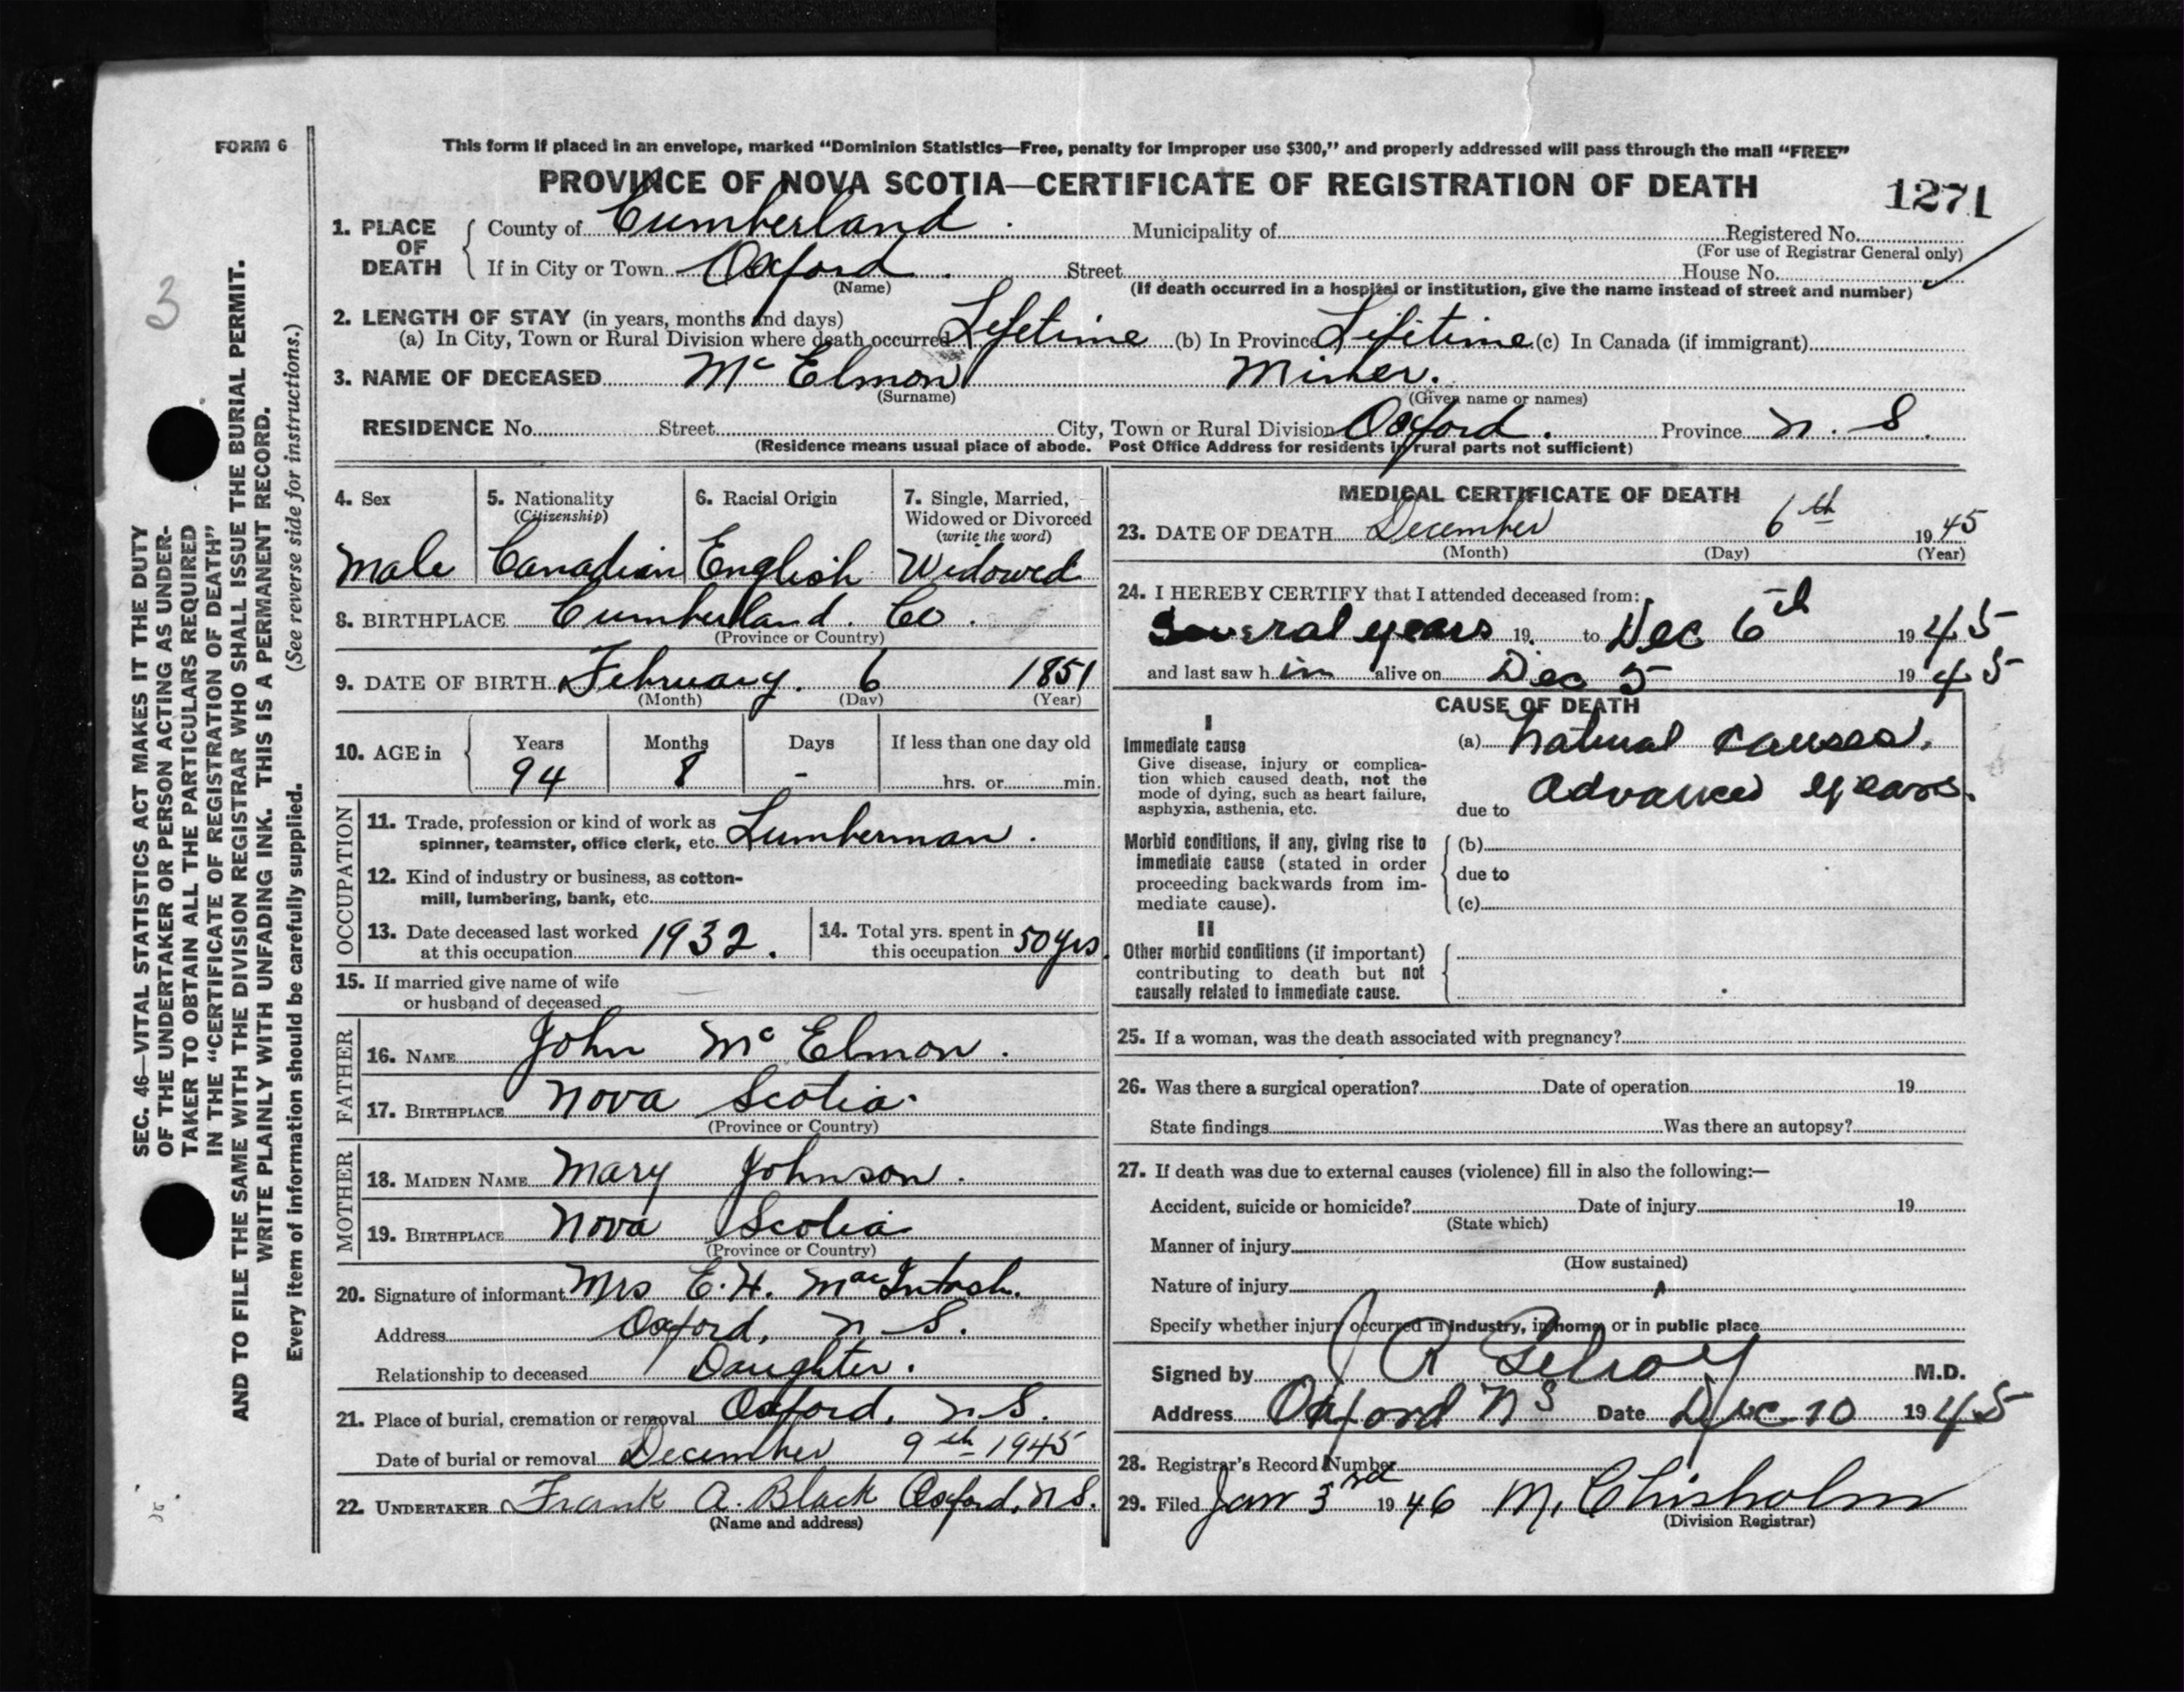 FORM 6
This form if placed in an envelope, marked "Dominion Statistics—Free, penalty for improper use $300," and properly addressed will pass through the mail "FREE"
PROVINCE OF NOVA SCOTIA—CERTIFICATE OF REGISTRATION OF DEATH
1271
1. PLACE OF DEATH
County of Cumberland. Municipality of Registered No.
(For use of Registrar General only)
If in City or Town Oxford. Street House No.
(Name) (If death occurred in a hospital or institution, give the name instead of street and number)
2. LENGTH OF STAY (in years, months and days)
(a) In City, Town or Rural Division where death occurred Lifetime (b) In Province Lifetime (c) In Canada (if immigrant)
3. NAME OF DECEASED Mc Elmon
(Surname) (Given name or names)
RESIDENCE No. Street City, Town or Rural Division Oxford. Province N. S.
(Residence means usual place of abode. Post Office Address for residents in rural parts not sufficient)
4. Sex
Male
5. Nationality
(Citizenship)
Canadian
6. Racial Origin
English
7. Single, Married,
Widowed or Divorced
(write the word)
Widowed
8. BIRTHPLACE Cumberland. Co.
(Province or Country)
9. DATE OF BIRTH February. 6 1851
(Month) (Day) (Year)
10. AGE in
Years Months Days If less than one day old
94 8 - hrs. or min.
OCCUPATION
11. Trade, profession or kind of work as
spinner, teamster, office clerk, etc. Lumberman.
12. Kind of industry or business, as cotton-
mill, lumbering, bank, etc.
13. Date deceased last worked
at this occupation 1932.
14. Total yrs. spent in
this occupation 50 yrs.
15. If married give name of wife
or husband of deceased
FATHER
16. NAME John Mc Elmon.
17. BIRTHPLACE Nova Scotia.
(Province or Country)
MOTHER
18. MAIDEN NAME Mary Johnson.
19. BIRTHPLACE Nova Scotia
(Province or Country)
20. Signature of informant Mrs E. H. MacIntosh.
Address Oxford, N. S.
Relationship to deceased Daughter.
21. Place of burial, cremation or removal Oxford, N.S.
Date of burial or removal December 9th 1945
22. UNDERTAKER Frank A. Black Oxford, N S.
(Name and address)
MEDICAL CERTIFICATE OF DEATH
23. DATE OF DEATH December 6th 1945
(Month) (Day) (Year)
24. I HEREBY CERTIFY that I attended deceased from:
Several years 19 to Dec 6th 1945
and last saw him alive on Dec 5 1945
CAUSE OF DEATH
I
Immediate cause
Give disease, injury or complica-
tion which caused death, not the
mode of dying, such as heart failure,
asphyxia, asthenia, etc.
(a) Natural causes.
due to Advanced years.
Morbid conditions, if any, giving rise to
immediate cause (stated in order
proceeding backwards from im-
mediate cause).
(b)
due to
(c)
II
Other morbid conditions (if important)
contributing to death but not
causally related to immediate cause.
25. If a woman, was the death associated with pregnancy?
26. Was there a surgical operation? Date of operation 19
State findings Was there an autopsy?
27. If death was due to external causes (violence) fill in also the following:—
Accident, suicide or homicide? Date of injury 19
(State which)
Manner of injury
(How sustained)
Nature of injury
Specify whether injury occurred in industry, in home, or in public place
Signed by J R Gilroy M.D.
Address Oxford N S Date Dec 10 1945
28. Registrar's Record Number
29. Filed Jan 3rd 1946 M. Chisholm
(Division Registrar)
3
SEC. 46—VITAL STATISTICS ACT MAKES IT THE DUTY
OF THE UNDERTAKER OR PERSON ACTING AS UNDER-
TAKER TO OBTAIN ALL THE PARTICULARS REQUIRED
IN THE "CERTIFICATE OF REGISTRATION OF DEATH"
AND TO FILE THE SAME WITH THE DIVISION REGISTRAR WHO SHALL ISSUE THE BURIAL PERMIT.
WRITE PLAINLY WITH UNFADING INK. THIS IS A PERMANENT RECORD.
Every item of information should be carefully supplied. (See reverse side for instructions.)